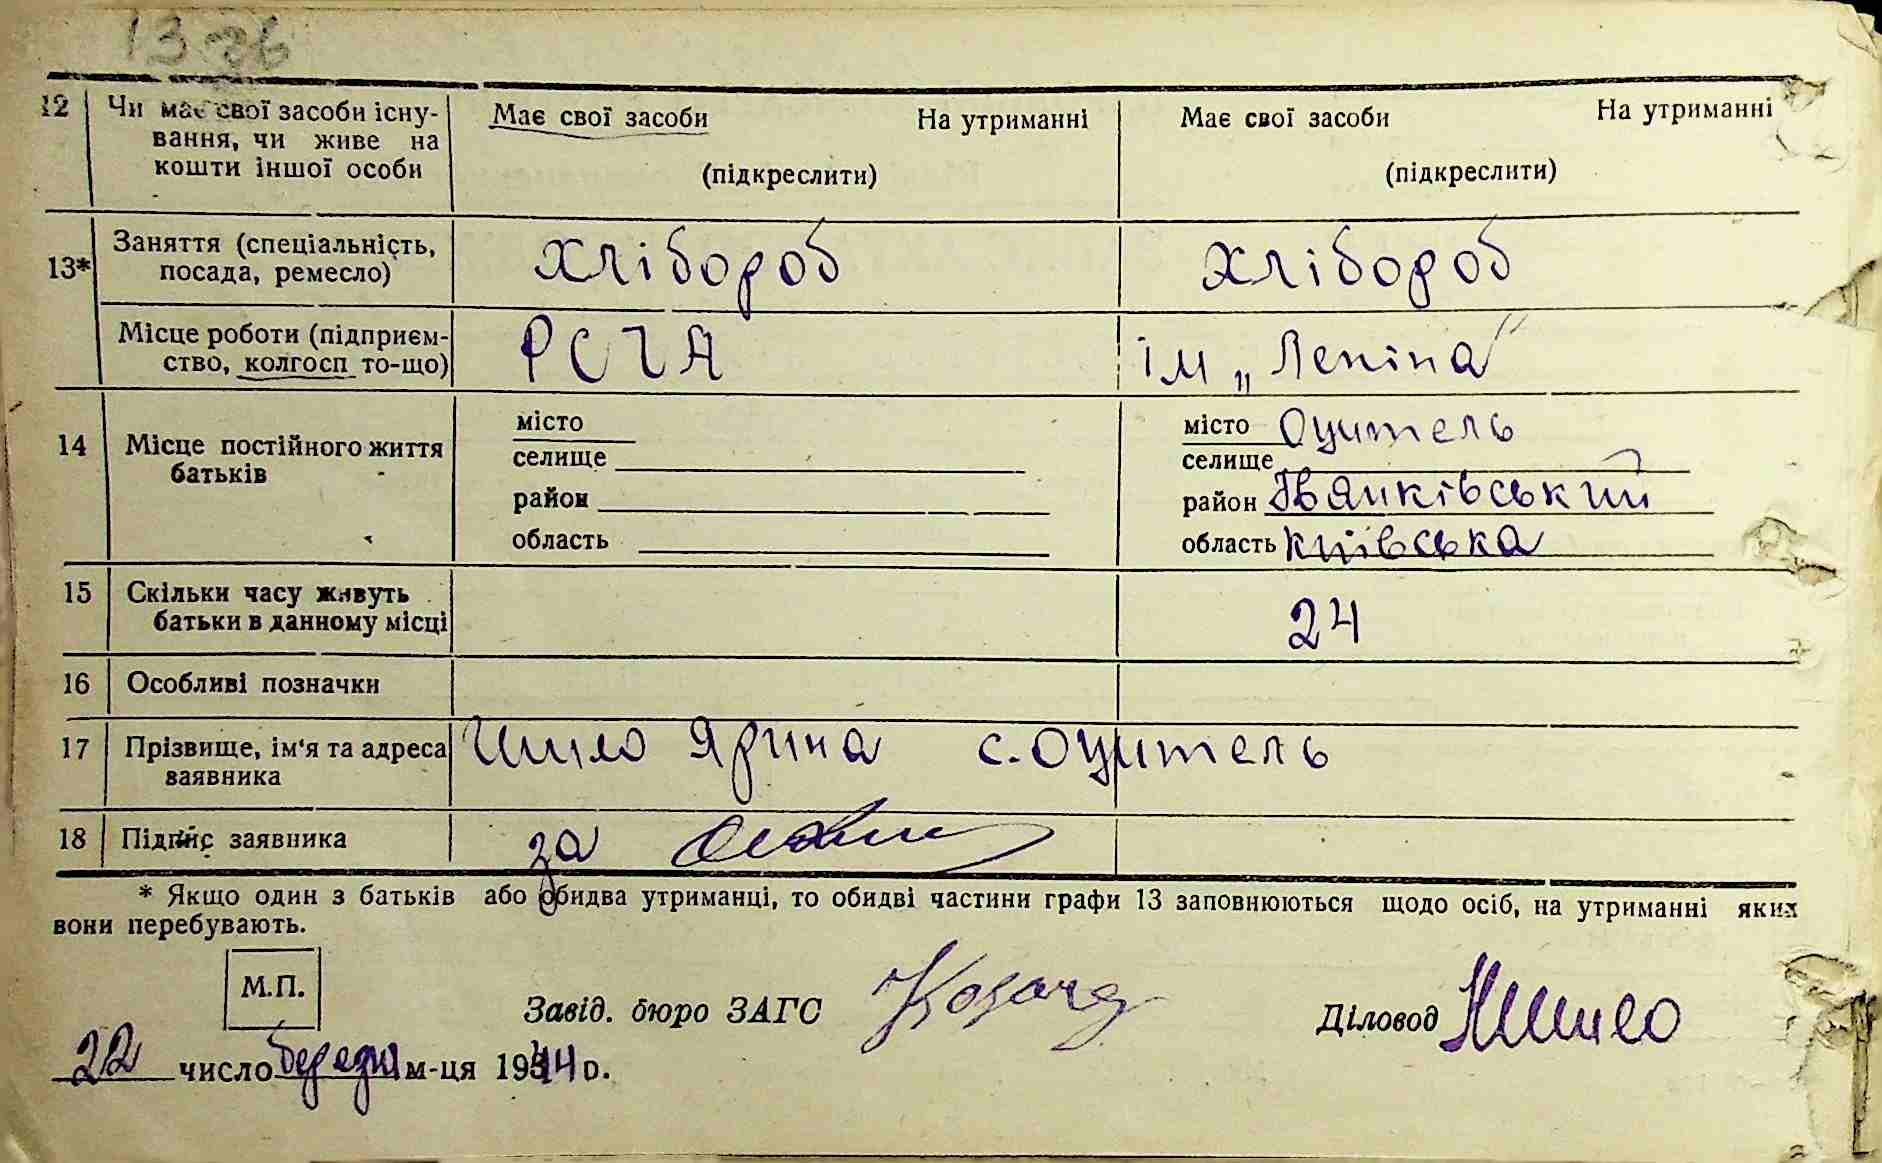 13 зв
12 Чи має свої засоби існу- Має свої засоби На утриманні Має свої засоби На утриманні
вання, чи живе на
кошти іншої особи (підкреслити) (підкреслити)
13* Заняття (спеціальність, хлібороб хлібороб
посада, ремесло)
Місце роботи (підприєм- РСЧА ім „Леніна"
ство, колгосп то-що)
14 Місце постійного життя місто місто Оцитель
батьків селище селище
район район Іванківський
область область київська
15 Скільки часу живуть 24
батьки в данному місці
16 Особливі позначки
17 Прізвище, ім'я та адреса Шило Ярина с. Оцитель
заявника
18 Підпис заявника за
* Якщо один з батьків або обидва утриманці, то обидві частини графи 13 заповнюються щодо осіб, на утриманні яких
вони перебувають.
М.П.
Завід. бюро ЗАГС Козач Діловод НШило
22 число березня м-ця 1944 р.